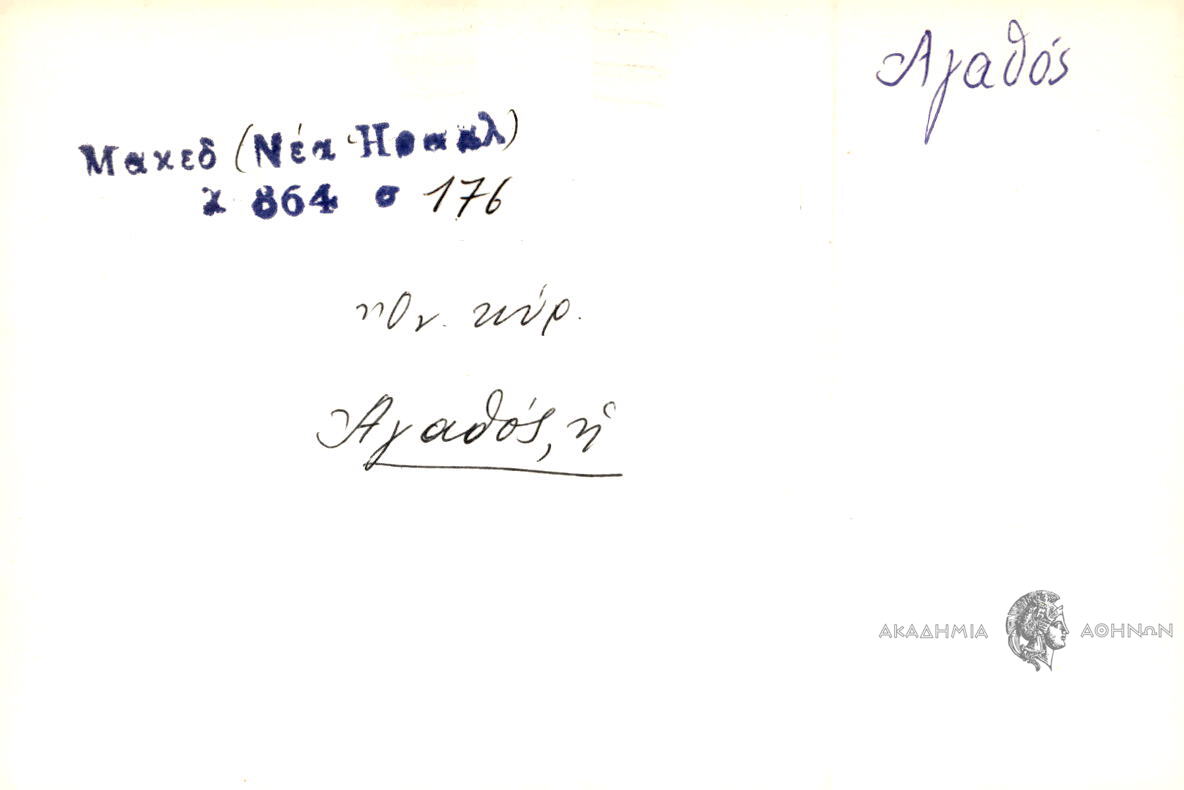 Ἀγαθός
Μακεδ (Νέα Ἡρακλ)
χ 864 σ 176
κύρ.
Ἀγαθός, ἡ
ΑΚΑΔΗΜΙΑ ΑΘΗΝΩΝ